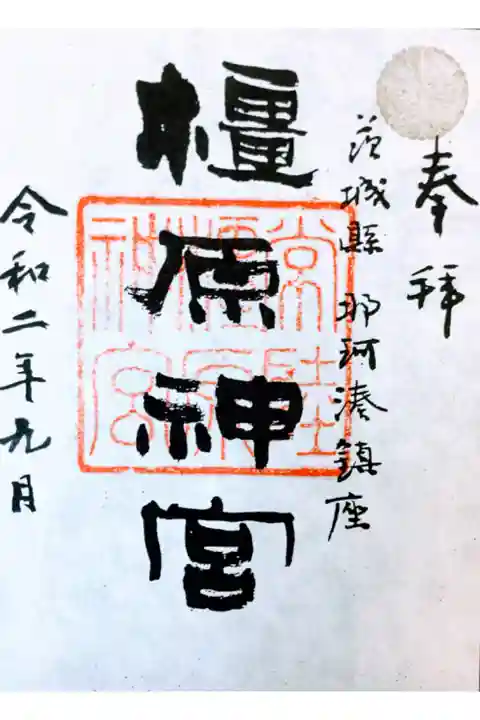 奉拝
茨城縣 那珂湊鎮座
橿原神宮
常陸
橿原
神宮
令和二年九月